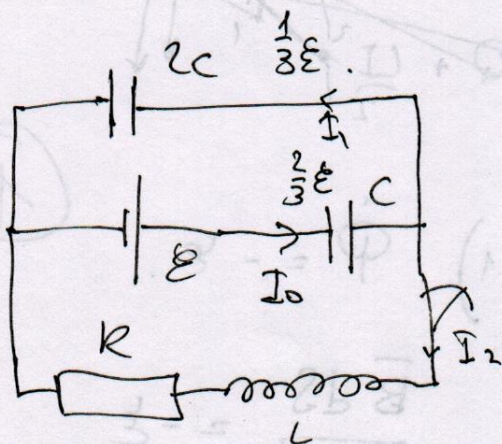 2C 1/3 ℰ.
I₁
2/3 ℰ C
ℰ I₀
I₂
R
L